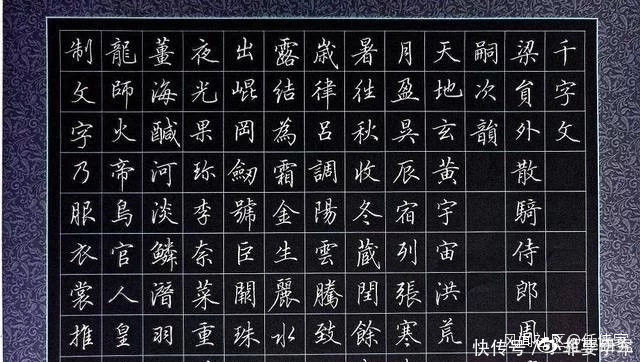 千字文
梁員外散騎侍郎周
嗣次韻
天地玄黃宇宙洪荒
月盈昃辰宿列張寒
暑往秋收冬藏閏餘
歲律呂調陽雲騰致
露結為霜金生麗水
出崐岡劒號巨闕珠
夜光果珍李柰菜重
薑海鹹河淡鱗潛羽
龍師火帝鳥官人皇
制文字乃服衣裳推
快传号